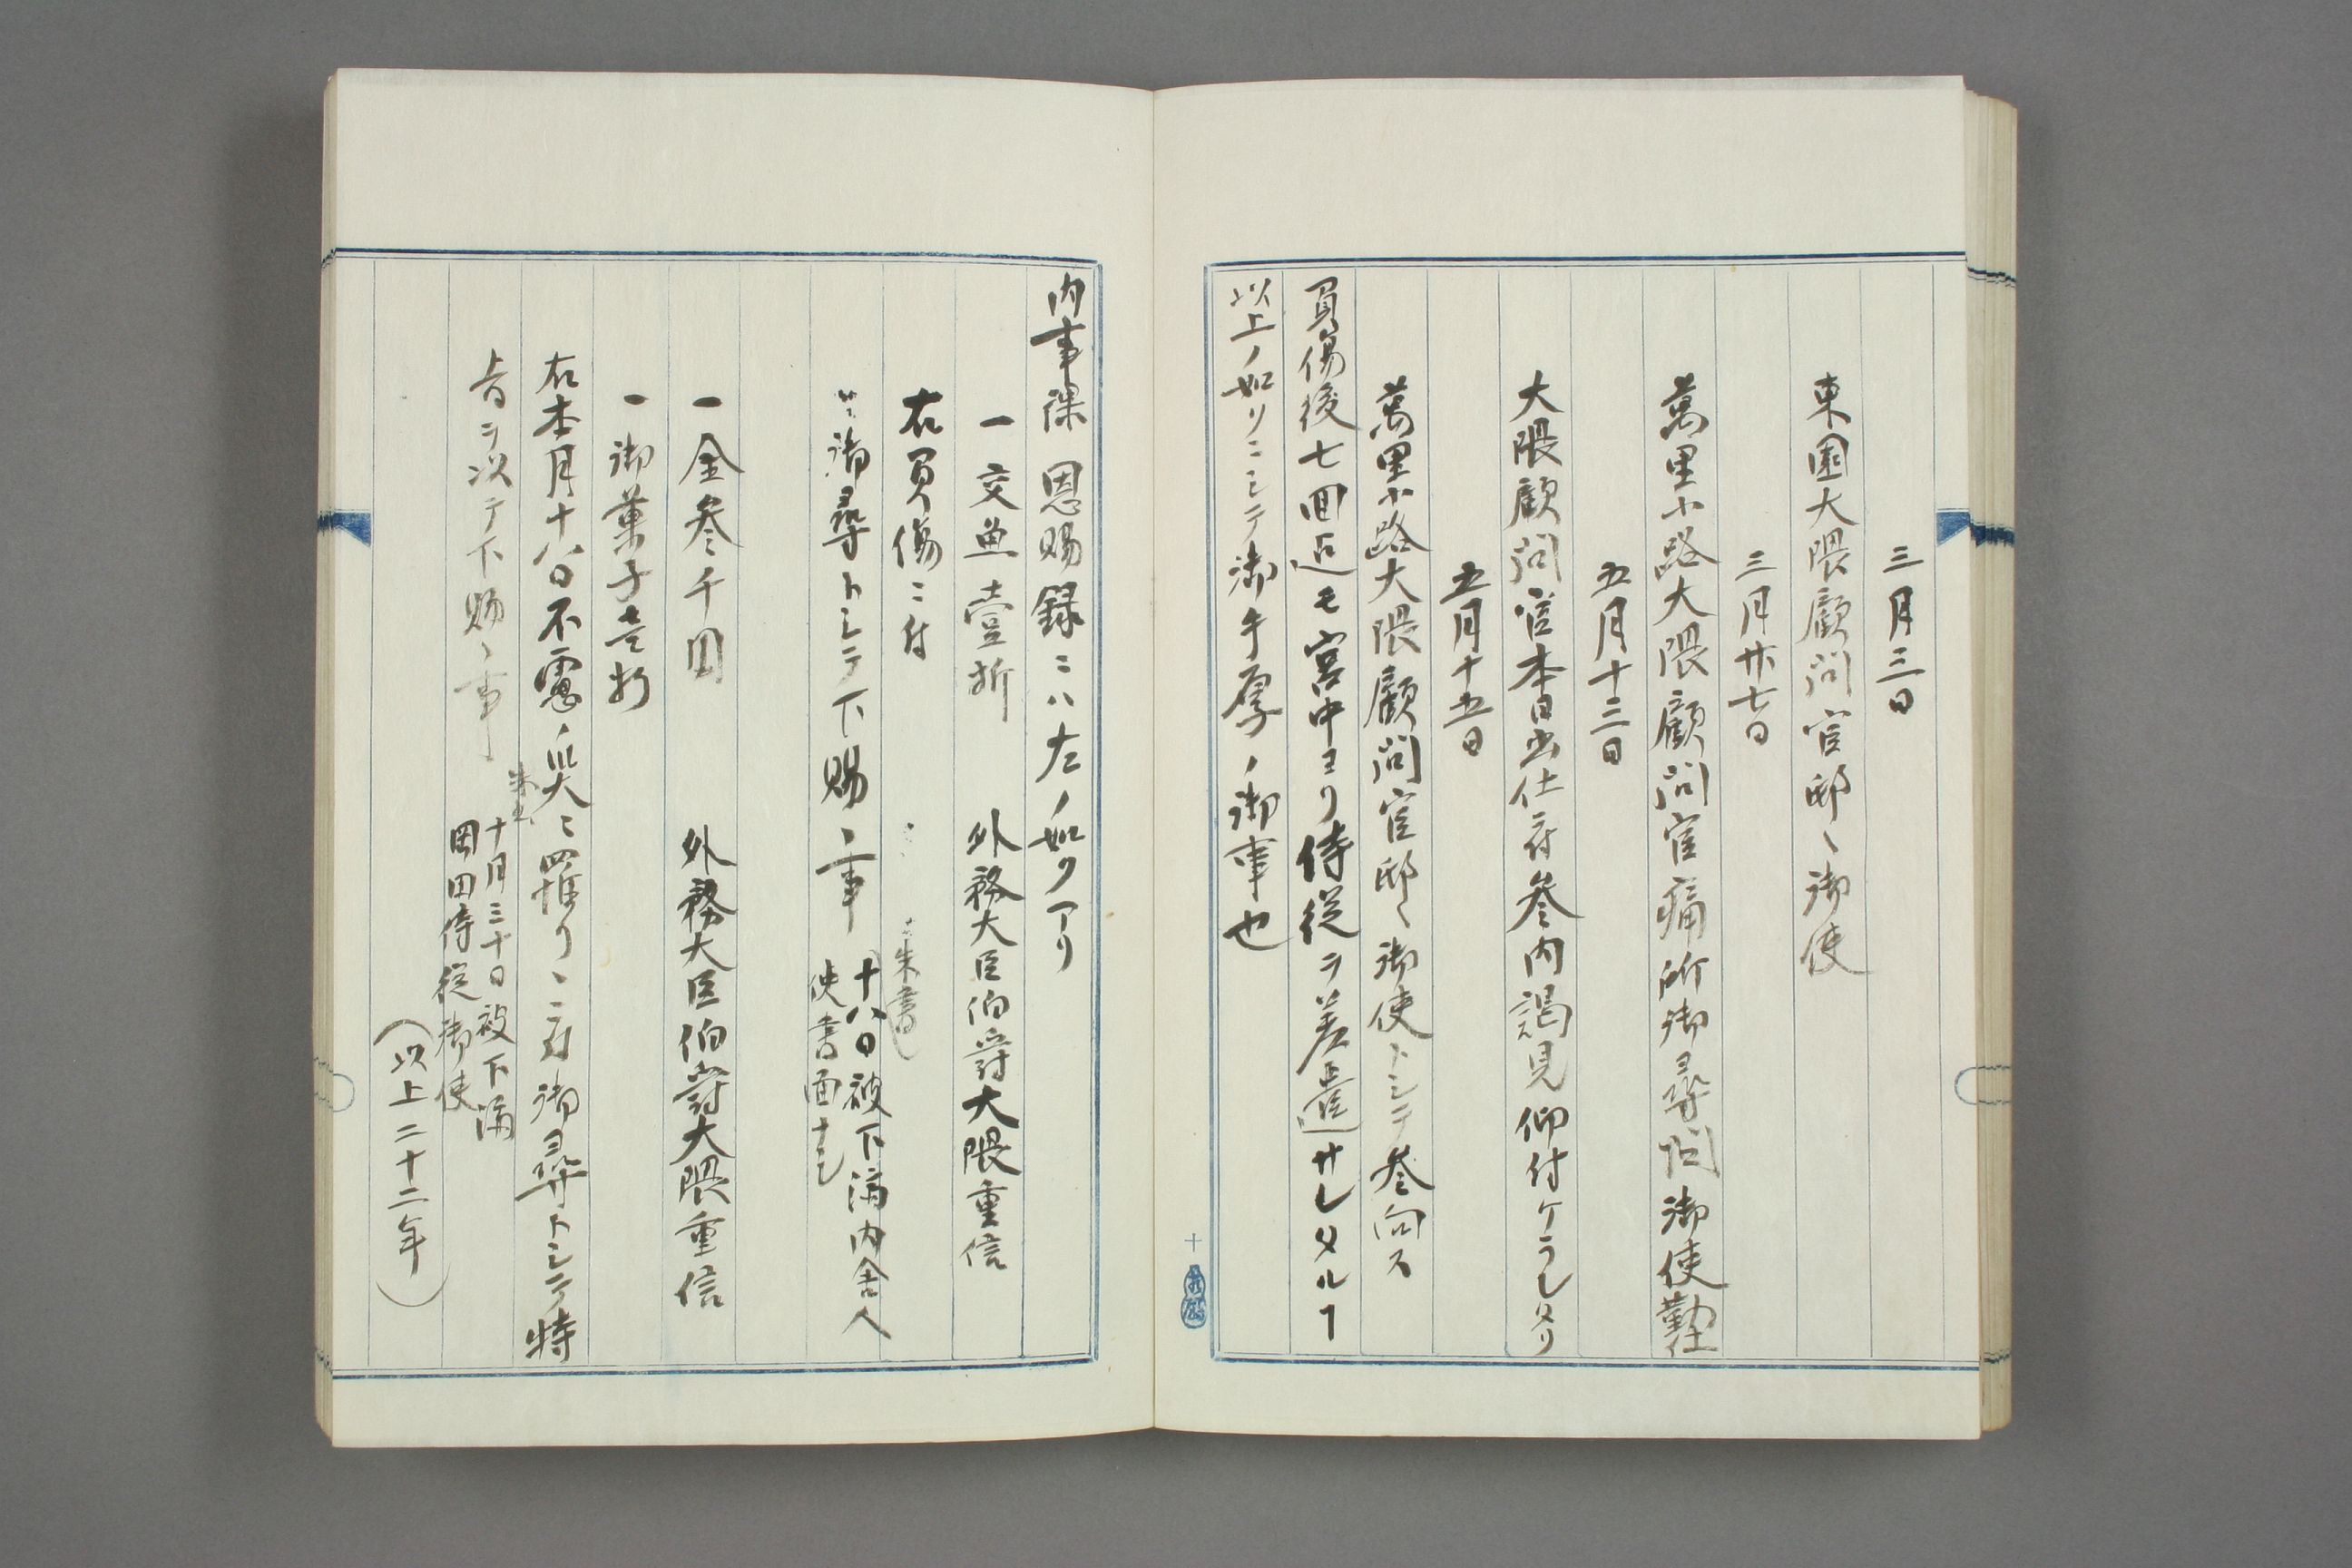 三月三日
東園大隈顧問官邸ヘ御使
三月廿七日
萬里小路大隈顧問官痛所御尋問御使勤仕
五月十三日
大隈顧問官本日出仕ニ付参内謁見仰付ケラレタリ
五月十五日
萬里小路大隈顧問官邸ヘ御使トシテ参向ス
負傷後七回迄モ宮中ヨリ侍従ヲ差遣サレタルヿ
以上ノ如リニシテ御手厚ノ御事也
十
内事課恩賜録ニハ左ノ如クアリ
一交魚壹折 外務大臣伯爵大隈重信
右負傷ニ付
御尋トシテ下賜ヽ事
朱書
十八日被下済内舎人
使書面ナシ
一金参千円 外務大臣伯爵大隈重信
一御菓子壱折
右本月十八日不慮ノ災ニ罹リヽニ付御尋トシテ特
旨ヲ以テ下賜ヽ事
朱書
十月三十日被下済
岡田侍従御使
(以上二十二年)